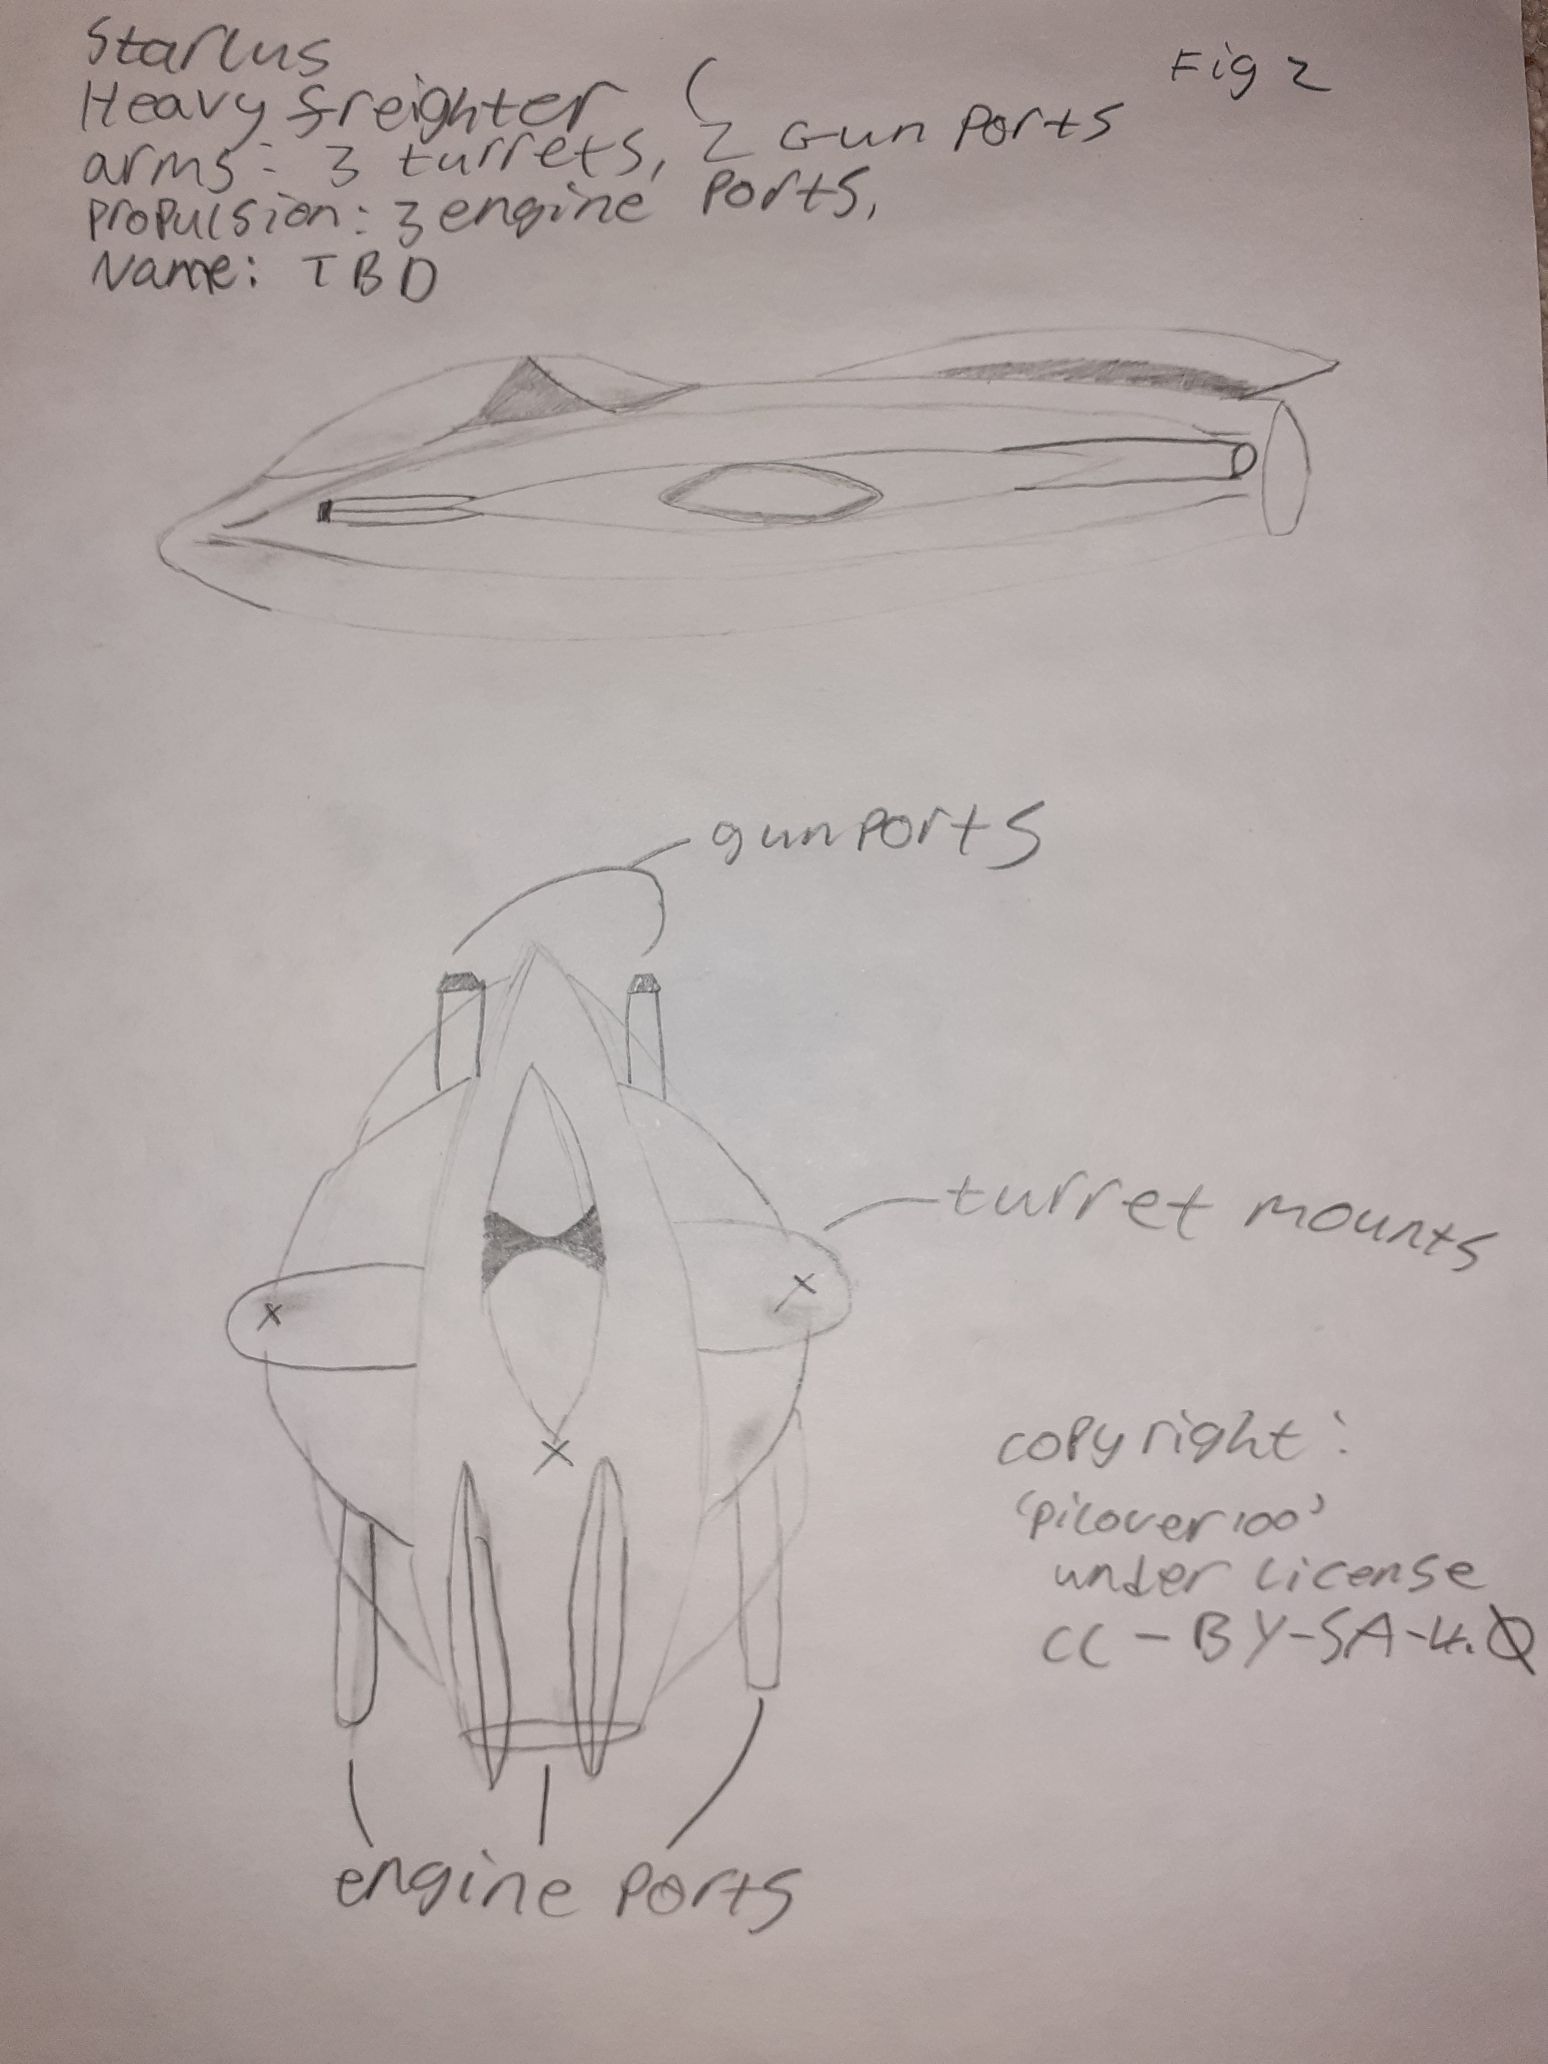 Starlus
Heavy freighter (
Fig 2
arms: 3 turrets, 2 Gun Ports
propulsion: 3 engine ports,
Name: TBD
gun ports
turret mounts
copyright:
'picover100'
under license
CC-BY-SA-4.0
x
x
x
engine ports